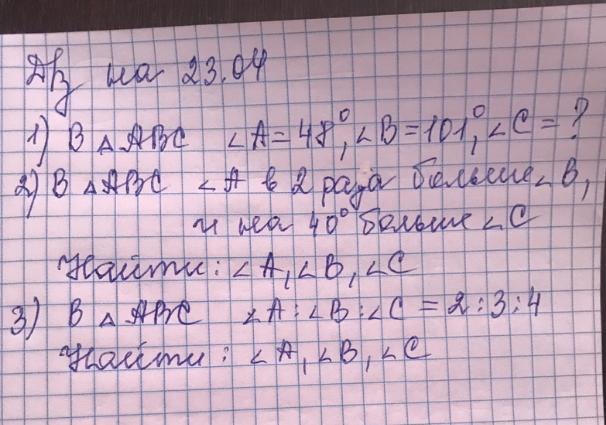 Дз на 23.04
1) В △ ABC ∠A = 48°, ∠B = 101°, ∠C = ?
2) В △ ABC ∠A в 2 раза больше ∠B,
и на 40° больше ∠C
Найти: ∠A, ∠B, ∠C
3) В △ ABC ∠A : ∠B : ∠C = 2 : 3 : 4
Найти: ∠A, ∠B, ∠C